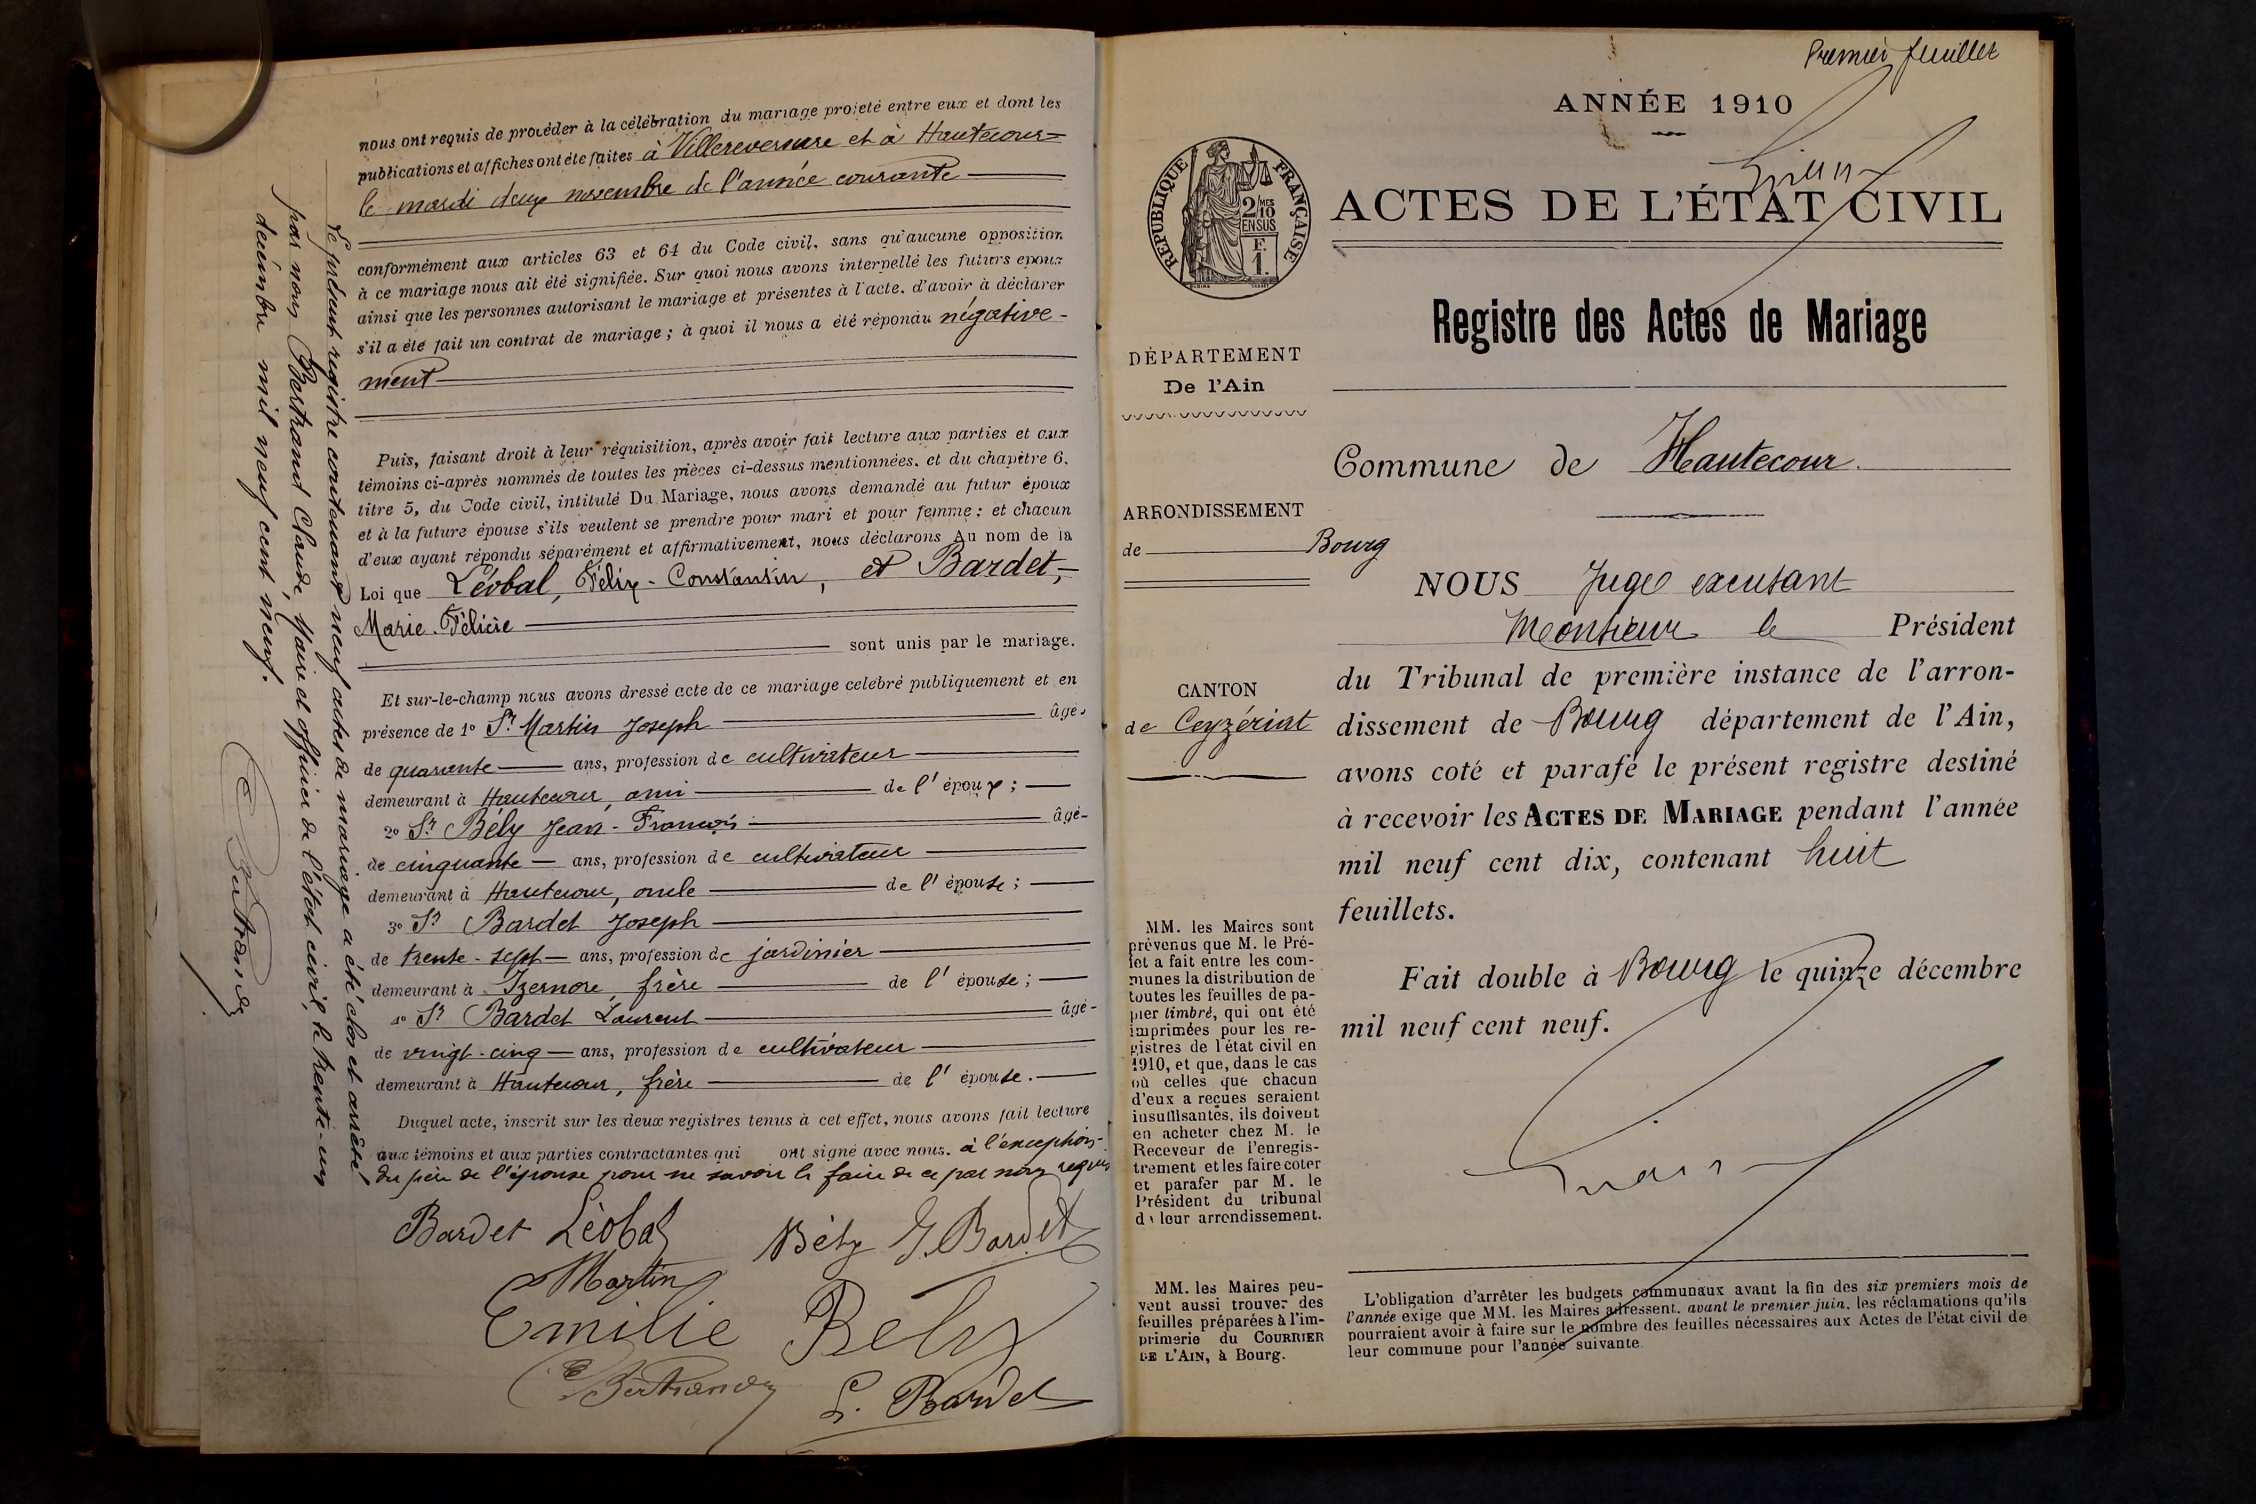 nous ont requis de procéder à la célébration du mariage projeté entre eux et dont les
publications et affiches ont été faites à Villereversure et à Hautecour=
le mardi deux novembre de l'année courante
conformément aux articles 63 et 64 du Code civil, sans qu'aucune opposition
à ce mariage nous ait été signifiée. Sur quoi nous avons interpellé les futurs epoux
ainsi que les personnes autorisant le mariage et présentes à l'acte, d'avoir à déclarer
s'il a été fait un contrat de mariage ; à quoi il nous a été répondu négative-
ment
Puis, faisant droit à leur réquisition, après avoir fait lecture aux parties et aux
témoins ci-après nommés de toutes les pièces ci-dessus mentionnées, et du chapitre 6,
titre 5, du Code civil, intitulé Du Mariage, nous avons demandé au futur époux
et à la future épouse s'ils veulent se prendre pour mari et pour femme ; et chacun
d'eux ayant répondu séparément et affirmativement, nous déclarons Au nom de la
Loi que Léobal, Félix-Constantin, et Bardet,
Marie-Félicie
sont unis par le mariage.
Et sur-le-champ nous avons dressé acte de ce mariage celébré publiquement et en
présence de 1º Sr Martin Joseph âgé
de quarante ans, profession de cultivateur
demeurant à Hautecour, ami de l'époux ;
2º Sr Bély Jean-François âgé
de cinquante ans, profession de cultivateur
demeurant à Hautecour, oncle de l'épouse ;
3º Sr Bardet Joseph
de trente-sept ans, profession de jardinier
demeurant à Izernore, frère de l'épouse ;
4º Sr Bardet Laurent âgé
de vingt-cinq ans, profession de cultivateur
demeurant à Hautecour, frère de l'épouse.
Duquel acte, inscrit sur les deux registres tenus à cet effet, nous avons fait lecture
aux témoins et aux parties contractantes qui ont signé avec nous, à l'exception
du père de l'épouse pour ne savoir le faire de ce par nous requis
Bardet Léobal Bély J. Bardet
Martin
Emilie Bély
C Bertrand
L. Bardet
Le présent registre contenant neuf actes de mariage a été clos et arrêté
par nous Bertrand Claude, Maire et officier de l'état civil, le trente-un
décembre mil neuf cent neuf.
C Bertrand
Premier feuillet
ANNÉE 1910
RÉPUBLIQUE FRANÇAISE
2/10 MES
EN SUS
F.
1.
ACTES DE L'ÉTAT CIVIL
Registre des Actes de Mariage
DÉPARTEMENT
De l'Ain
Commune de Hautecour
ARRONDISSEMENT
de Bourg
CANTON
de Ceyzériat
NOUS Juge excusant
Monsieur le Président
du Tribunal de première instance de l'arron-
dissement de Bourg département de l'Ain,
avons coté et parafé le présent registre destiné
à recevoir les ACTES DE MARIAGE pendant l'année
mil neuf cent dix, contenant huit
feuillets.
Fait double à Bourg le quinze décembre
mil neuf cent neuf.
MM. les Maires sont
prévenus que M. le Pré-
fet a fait entre les com-
munes la distribution de
toutes les feuilles de pa-
pier timbré, qui ont été
imprimées pour les re-
gistres de l'état civil en
1910, et que, dans le cas
où celles que chacun
d'eux a reçues seraient
insuffisantes, ils doivent
en acheter chez M. le
Receveur de l'enregis-
trement et les faire coter
et parafer par M. le
Président du tribunal
de leur arrondissement.
MM. les Maires peu-
vent aussi trouver des
feuilles préparées à l'im-
primerie du COURRIER
DE L'AIN, à Bourg.
L'obligation d'arrêter les budgets communaux avant la fin des six premiers mois de
l'année exige que MM. les Maires adressent, avant le premier juin, les réclamations qu'ils
pourraient avoir à faire sur le nombre des feuilles nécessaires aux Actes de l'état civil de
leur commune pour l'année suivante.